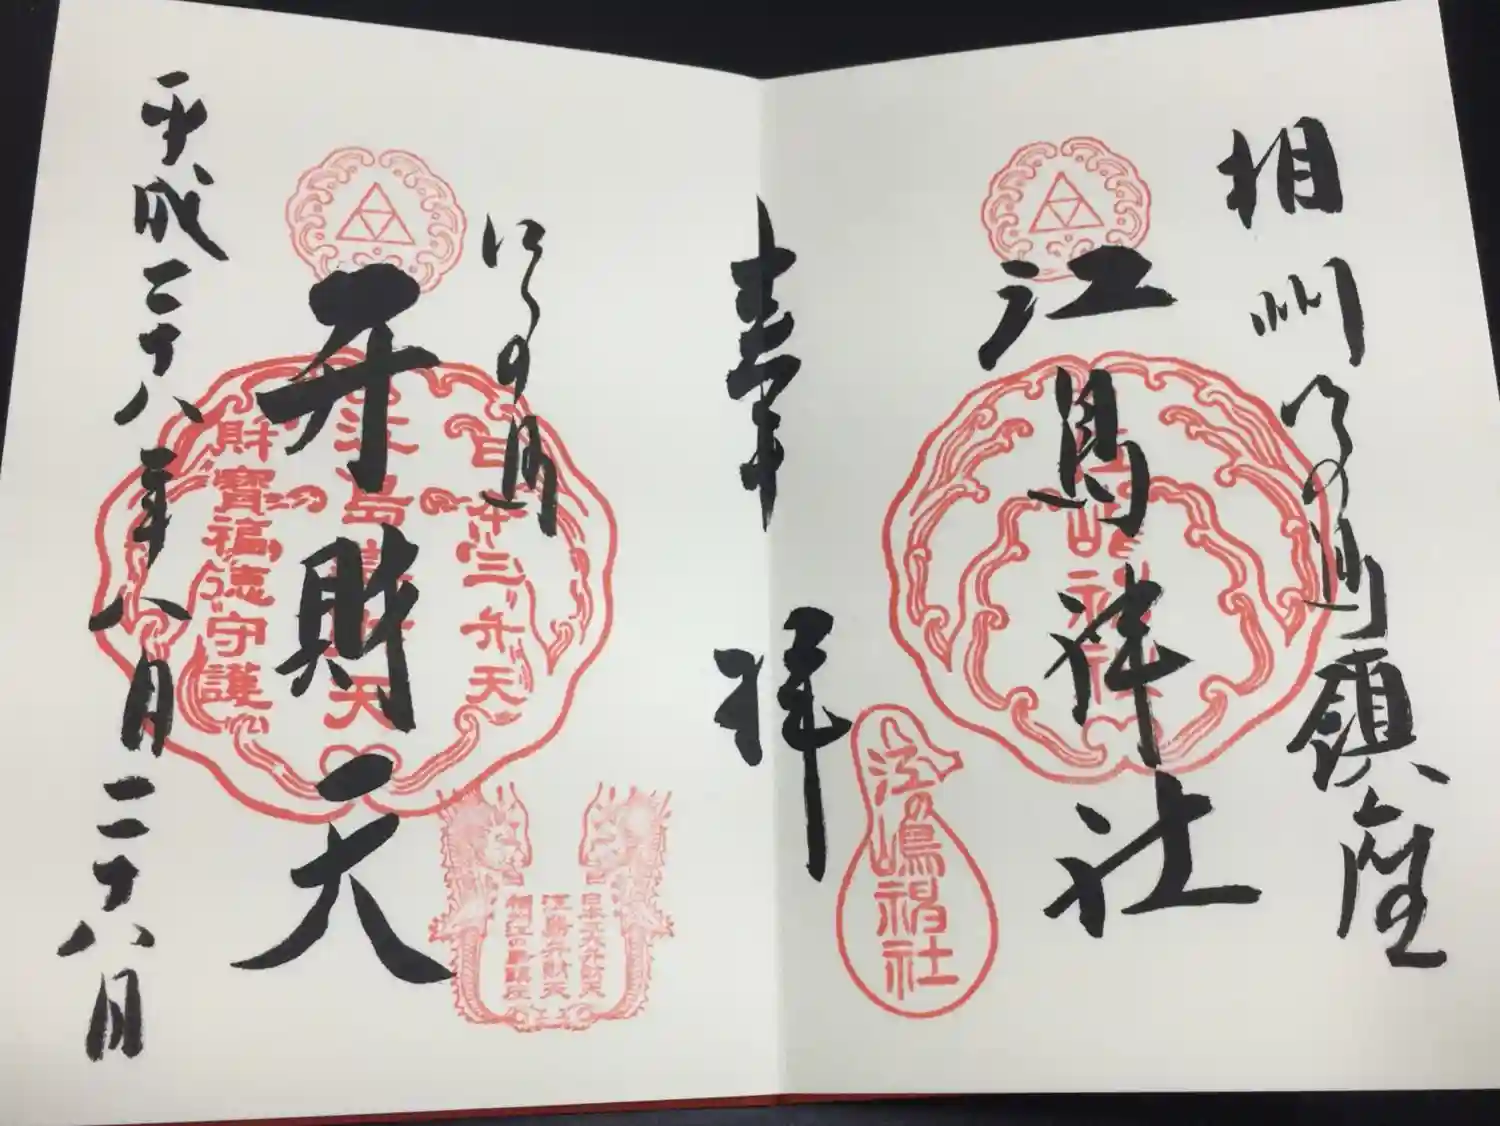 相州江の島鎮座
江島神社
奉拝
江の嶋
神社
江の島
弁財天
日本三弁天
江島弁財天
財寶福徳守護
日本三大弁財天
江島弁財天
相州江の島鎮座
平成二十八年八月二十八日